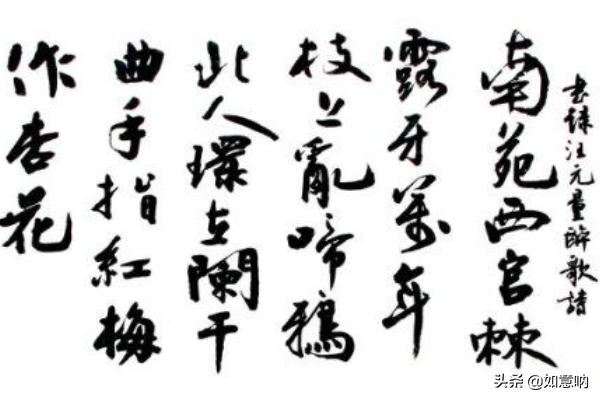 書錄汪元量醉歌詩
南苑西宮棘
露牙萬年
枝上亂啼鴉
北人環立闌干
曲手指紅梅
作杏花
头条 @如意呐